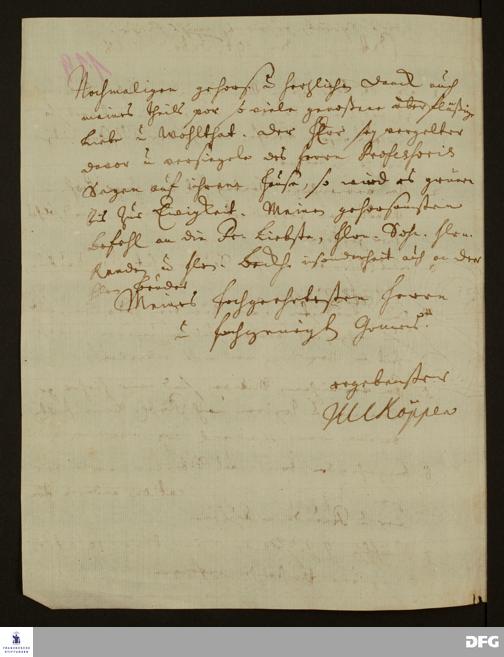 119
Nochmaligen gehors. u herzlichen Danck auch
meines Theils vor so viele genoßene überflüßige
Liebe u Wohlthat. Der Herr sey Vergelter
davor u versiegele des Herrn Professoris
Segen auf ihrem Hause, so wird es grünen
bis zur Ewigkeit. Meinen gehorsamsten
Befehl an die Fr. Liebste, Hrn. Sohn, Hrn.
u Hrn. insonderheit auch an den
Hrn Bruder
Meines hochgeehrtesten Herrn
u hochgeneigten Gönners
ergebenster
Köppen
FRANCKESCHE
STIFTUNGEN
DFG